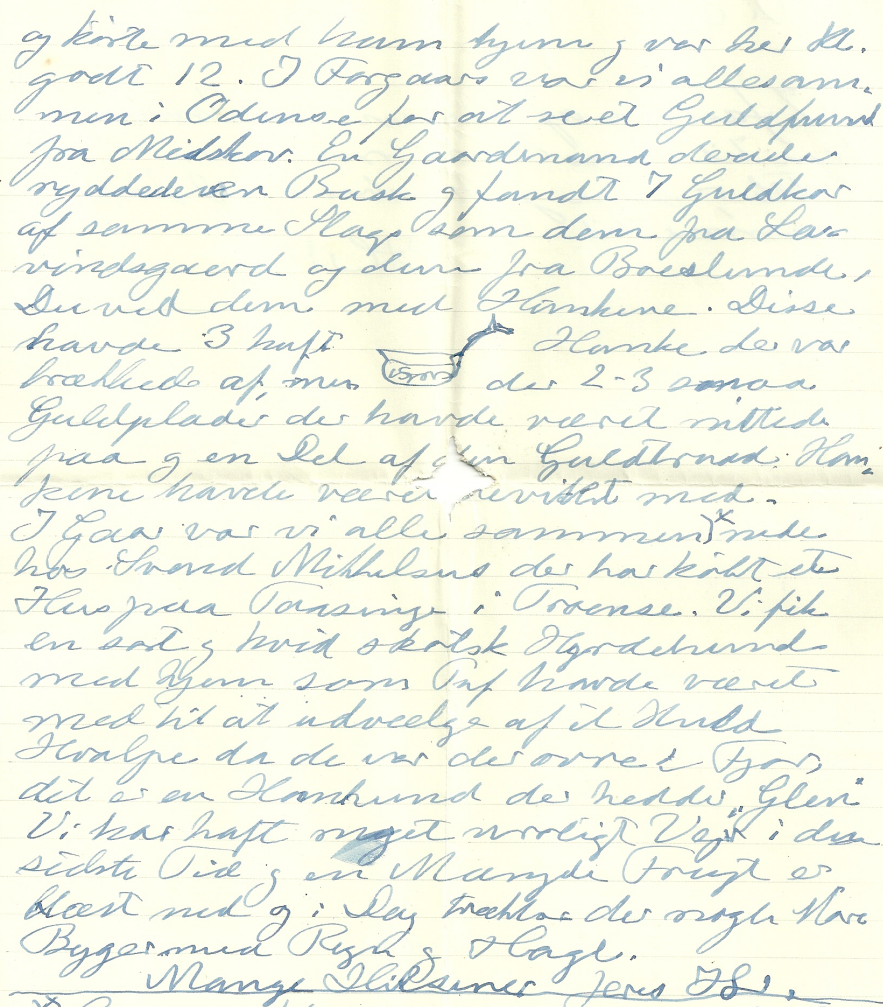 og kørte med ham hjem g var her Kl.
godt 12. I Forgaars var vi allesam-
men i Odense for at se et Guldfund
fra Midskov. En Gaardmand dernede
ryddede en Busk g fandt 7 Guldkar
af samme Slags som dem fra La-
vindsgaard og dem fra Boeslunde,
Du ved dem med Hankene. Disse
havde 3 haft Hanke der var
brækkede af, men der 2-3 smaa
Guldplader der havde været nittede
paa g en Del af den Guldtraad Han-
kene havde været beviklet med.
I Gaar var vi alle sammen x) nede
hos Svend Mikkelsens der har købt et
Hus paa Taasinge i Troense. Vi fik
en sort g hvid skotsk Hyrdehund
med hjem som Tuf havde været
med til at udvælge af et Kuld
Hvalpe da de var derovre i Fjor,
det er en Hanhund der hedder "Glen"
Vi har haft meget uroligt Vejr i den
sidste Tid g en Mængde Frugt er
blæst ned og i Dag trækker der nogle
Byger med Regn g Hagl.
Mange Hilsener Jeres